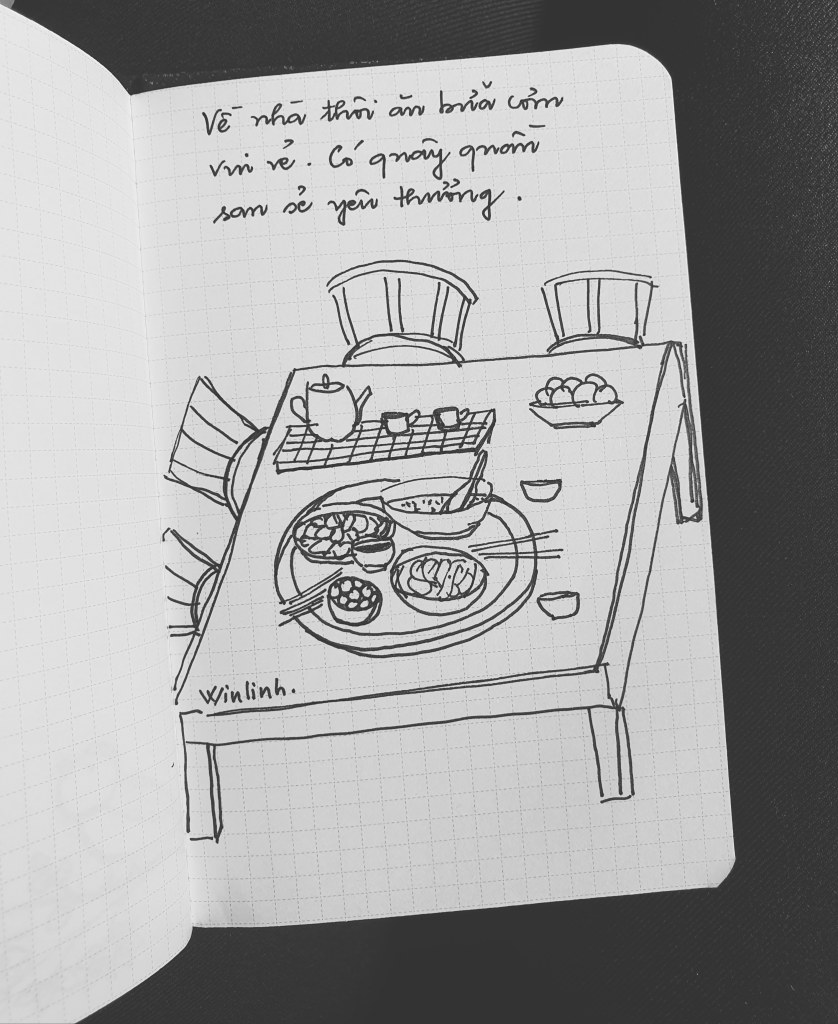 Về nhà thôi ăn bữa cơm
vui vẻ. Có quây quần
san sẻ yêu thương.
Winlinh.